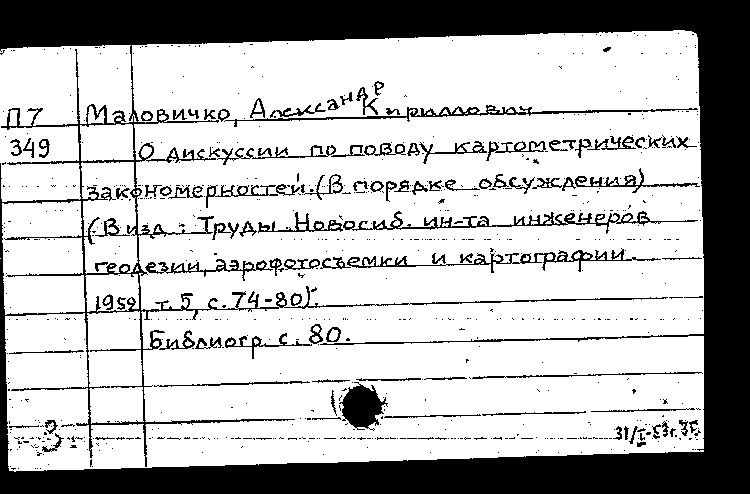 П7 Маловичко, Александр Кириллович
349 О дискуссии по поводу картометрических
закономерностей. (В порядке обсуждения)
(В изд.: Труды Новосиб. ин-та инженеров
геодезии, аэрофотосъемки и картографии.
1952, т. 5, с. 74-80).
Библиогр. с. 80.
3.
31/I-53г.